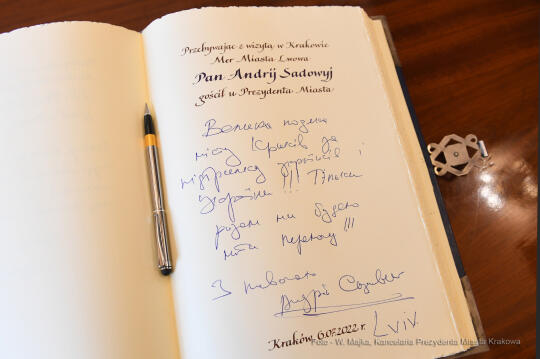 Przebywając z wizytą w Krakowie
Mer Miasta Lwowa
Pan Andrij Sadowyj
gościł u Prezydenta Miasta
Велика подяка
місту Краків за
підтримку українців і
України !!! Тільки
разом ми будемо
мати перемогу !!!
З повагою
Андрій Садовий
Lviv
Kraków, 6.07.2022 r.
Foto - W. Majka, Kancelaria Prezydenta Miasta Krakowa